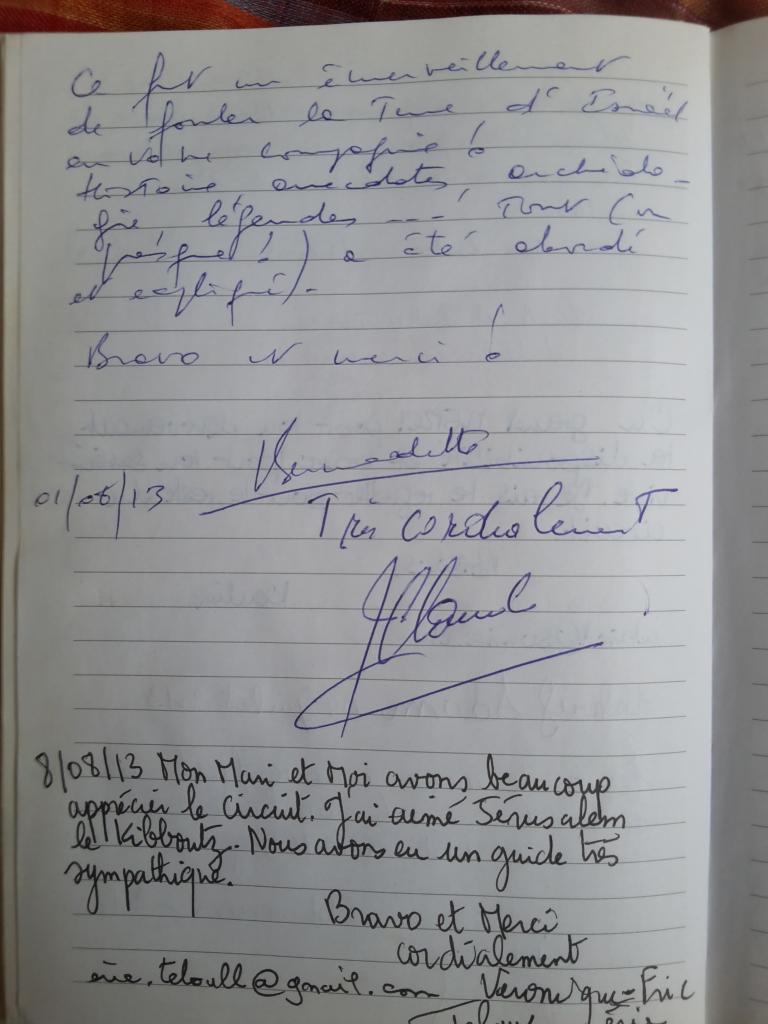 Ce fut un émerveillement
de fouler la Terre d'Israël
en votre compagnie !
Histoire, anecdotes, archéolo-
gie, légendes ---! Tout (ou
presque !) a été abordé
et expliqué).
Bravo et merci !
Bernadette
01/06/13
Très cordialement
8/08/13 Mon Mari et Moi avons beaucoup
apprécier le Circuit. J'ai aimé Jérusalem
le Kibboutz. Nous avons eu un guide très
sympathique.
Bravo et Merci
cordialement
@gmail.com Veronique-Eric